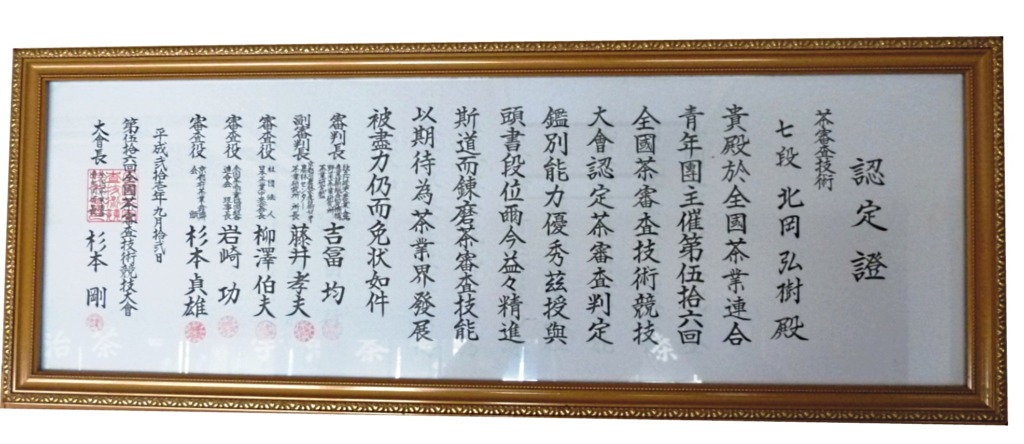 認定證
茶審査技術
七段 北岡弘樹殿
貴殿於全國茶業連合
青年團主催第伍拾六回
全國茶審査技術競技
大會認定茶審査判定
鑑別能力優秀茲授與
頭書段位爾今益々精進
斯道而錬磨茶審査技能
以期待為茶業界發展
被盡力仍而免状如件
審判長
吉冨 均
副審判長
藤井孝夫
審査役 社団法人
柳澤伯夫
審査役
理事長 岩崎 功
審査役
杉本貞雄
平成弐拾壱年九月拾弐日
第伍拾六回全國茶審査技術競技大會
大會長 杉本 剛